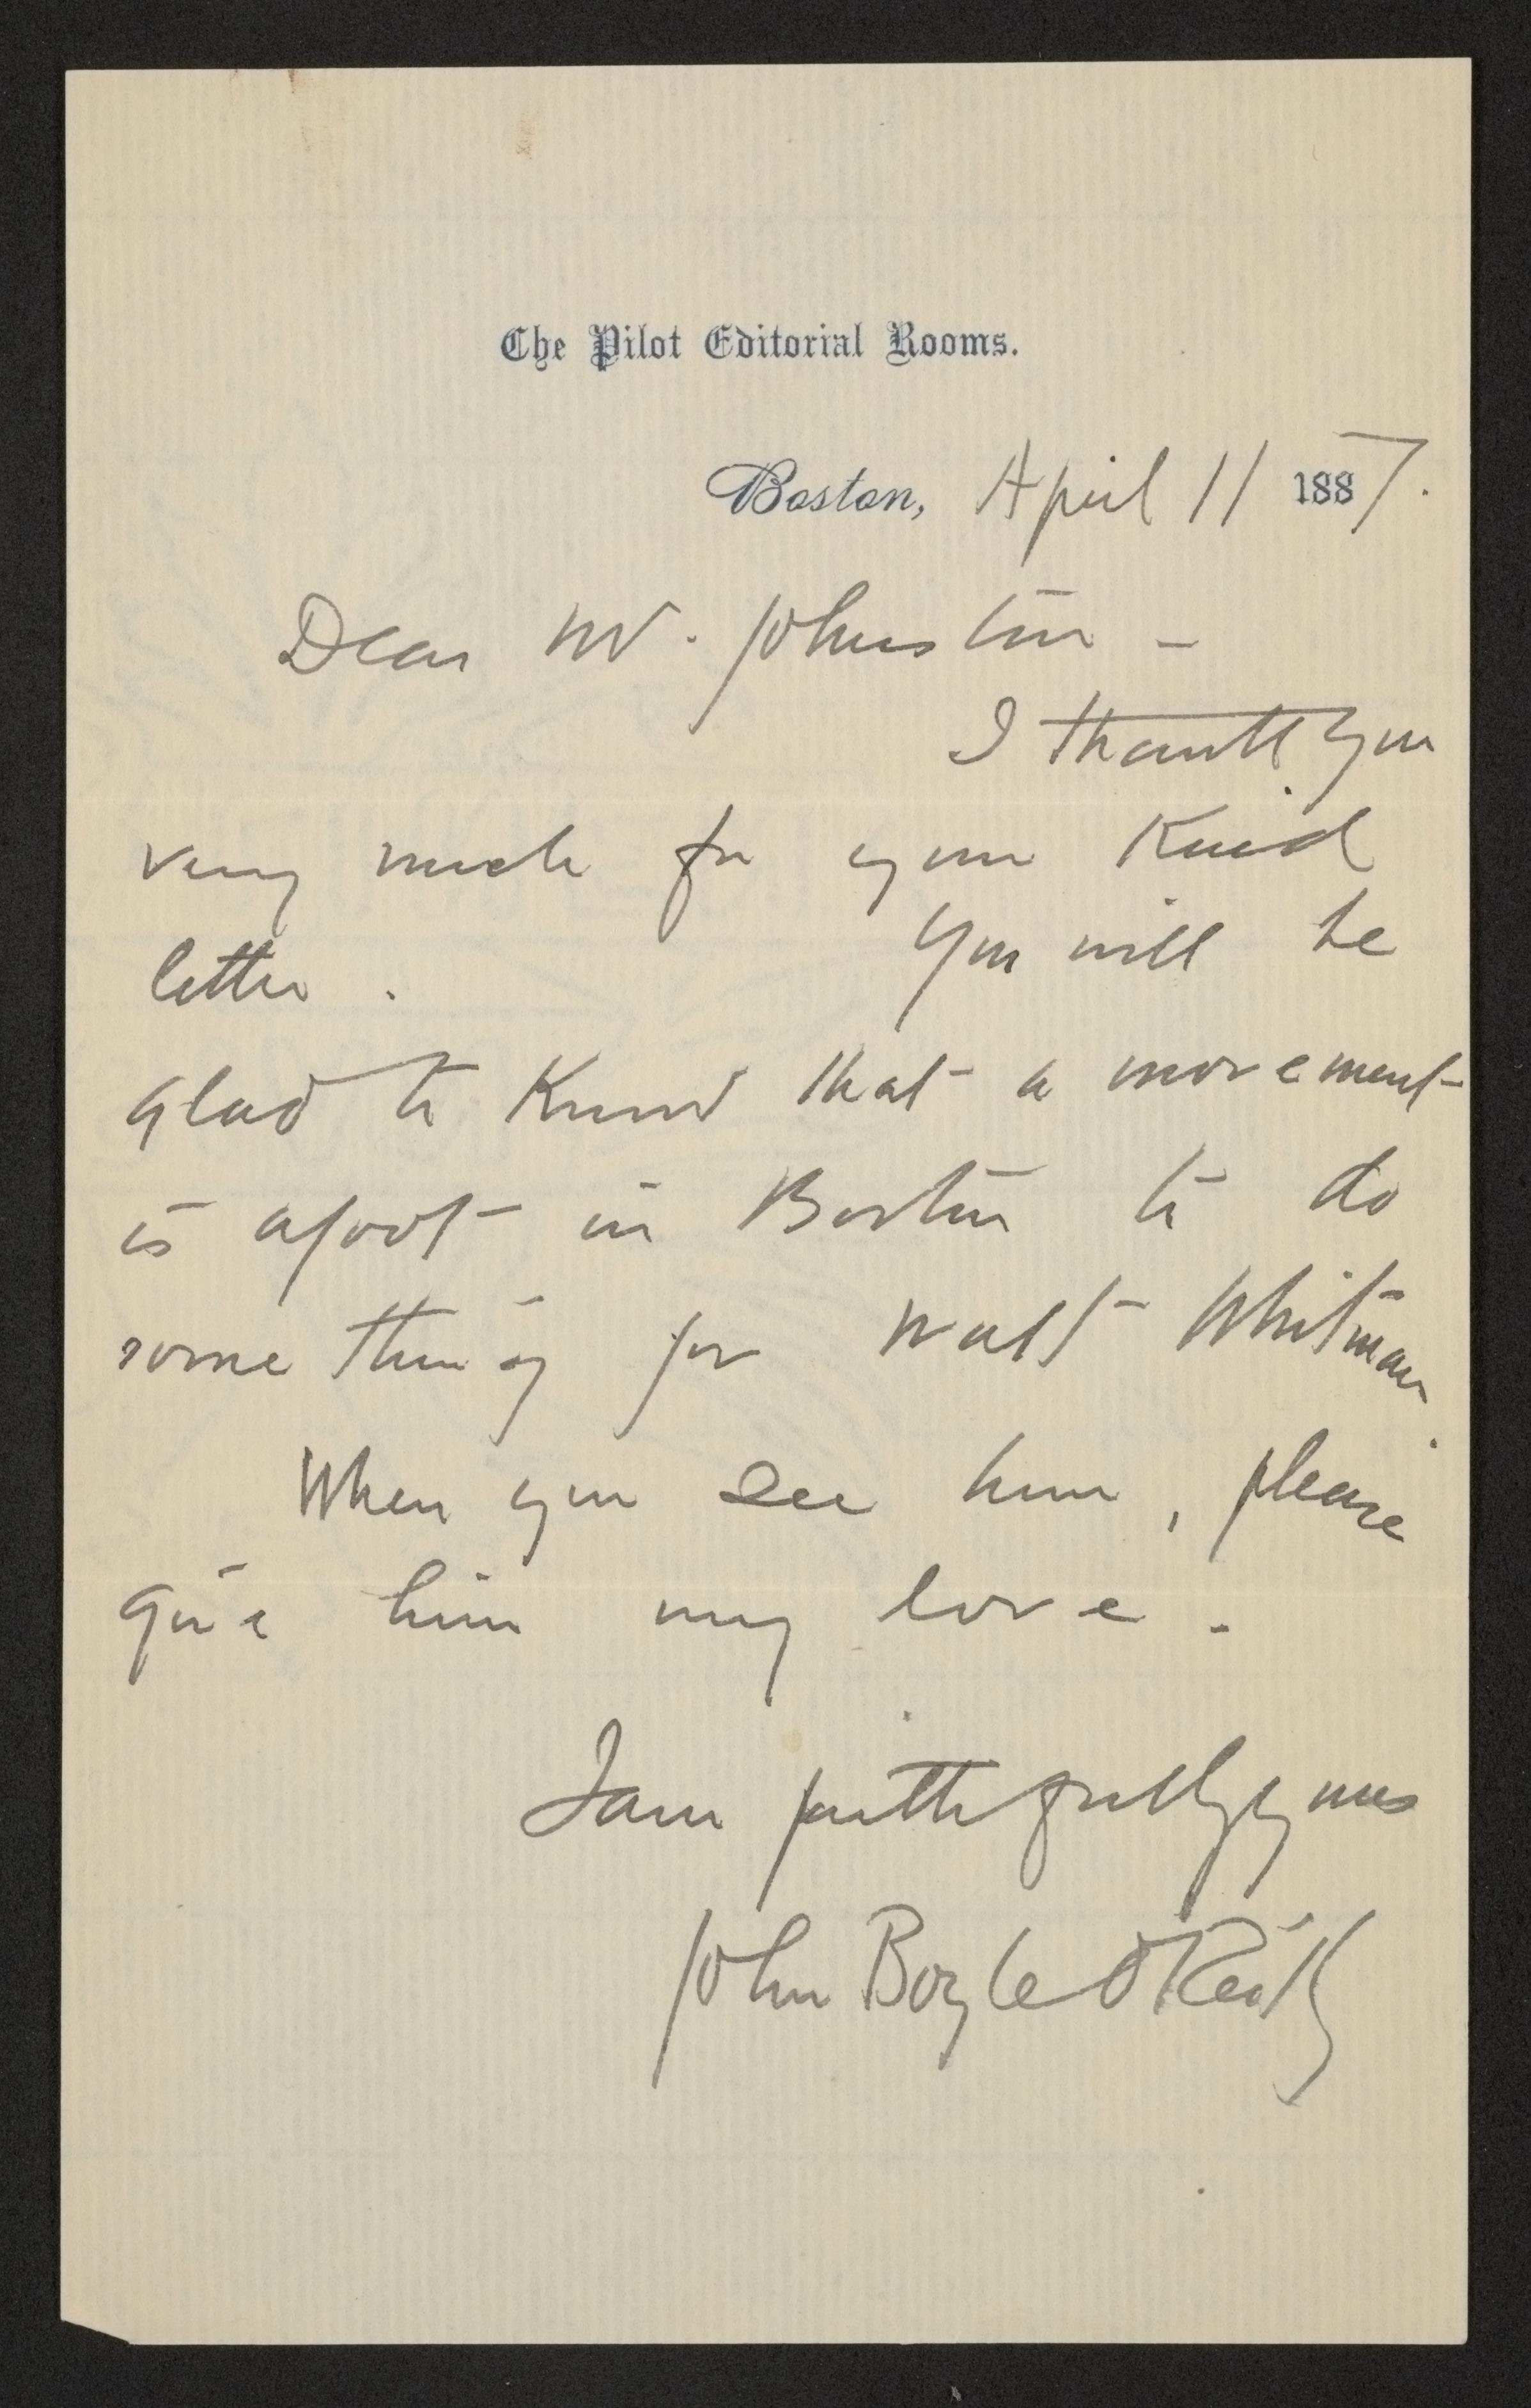 The Pilot Editorial Rooms.
Boston, April 11 1887.
Dear Mr. Johnston –
I thank you
very much for your kind
letter. You will be
glad to know that a movement
is afoot in Boston to do
something for Walt Whitman.
When you see him, please
give him my love.
I am faithfully yours
John Boyle O'Reilly